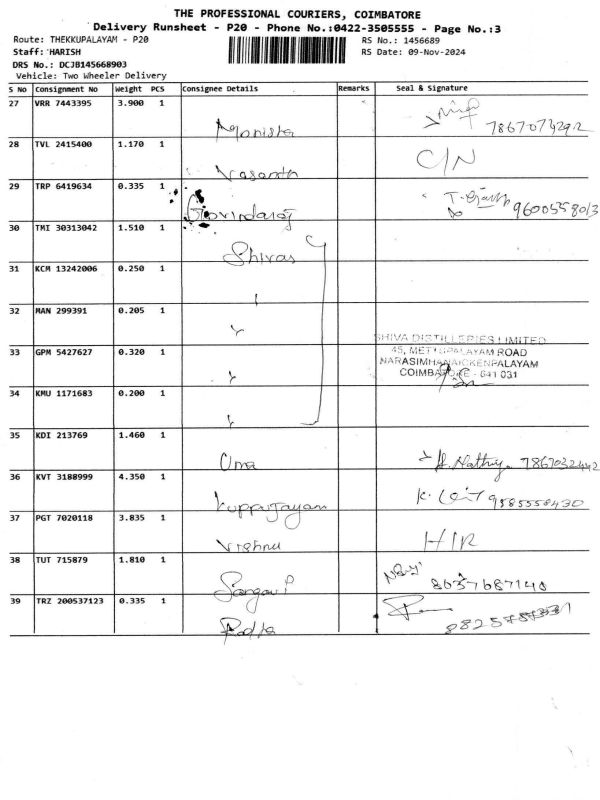 THE PROFESSIONAL COURIERS, COIMBATORE
Delivery Runsheet - P20 - Phone No.:0422-3505555 - Page No.:3
Route: THEKKUPALAYAM - P20
RS No.: 1456689
Staff: HARISH
RS Date: 09-Nov-2024
DRS No.: DCJB145668903
Vehicle: Two Wheeler Delivery
S No Consignment No Weight PCS Consignee Details Remarks Seal & Signature
27 VRR 7443395 3.900 1
Monisha
28 TVL 2415400 1.170 1 C/N
Vasanth
29 TRP 6419634 0.335 1
Govindaraj 9600558013
30 TMI 30313042 1.510 1
Shivas
31 KCM 13242006 0.250 1
32 MAN 299391 0.205 1
SHIVA DISTILLERIES LIMITED
33 GPM 5427627 0.320 1 45, METTUPALAYAM ROAD
NARASIMHANAICKENPALAYAM
COIMBATORE - 641 031
34 KMU 1171683 0.200 1
35 KDI 213769 1.460 1
Uma 7867032442
36 KVT 3188999 4.350 1
Kuppujayam 9585558430
37 PGT 7020118 3.835 1
Vishnu H/R
38 TUT 715879 1.810 1
8637687140
39 TRZ 200537123 0.335 1
Radha